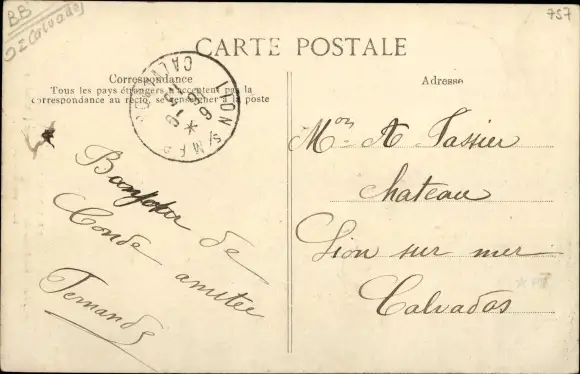 BB
02 Calvados
757
CARTE POSTALE
Correspondance
Tous les pays étrangers n'acceptent pas la
correspondance au recto, se renseigner à la poste
LION S/MER
CALVADOS
Bonjour de
Conde amitée
Fernande
Adresse
Mon A Tassier
Chateau
Lion sur mer
Calvados